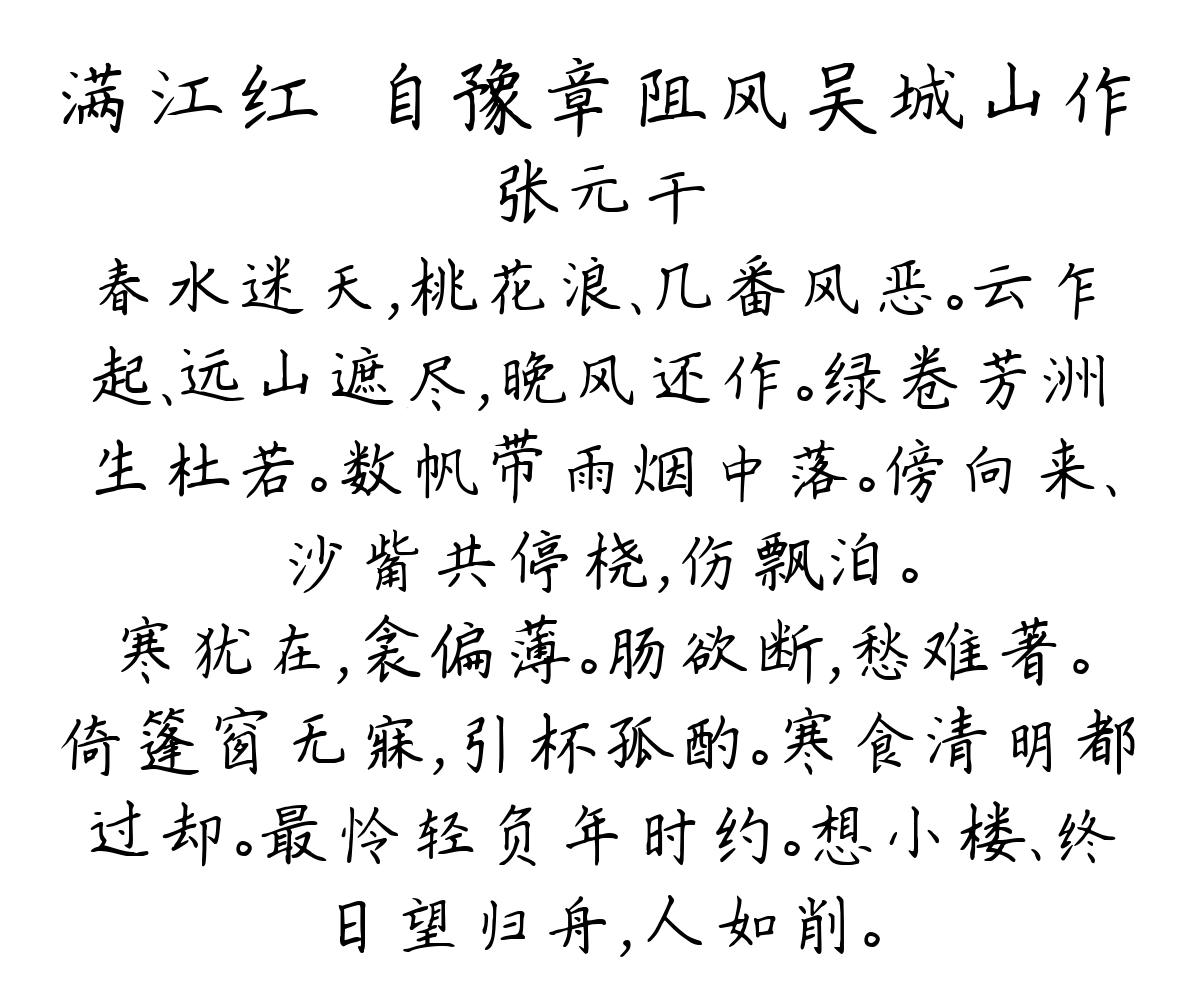 满江红 自豫章阻风吴城山作
张元干
春水迷天,桃花浪、几番风恶。云乍
起、远山遮尽,晚风还作。绿卷芳洲
生杜若。数帆带雨烟中落。傍向来、
沙觜共停桡,伤飘泊。
寒犹在,衾偏薄。肠欲断,愁难著。
倚篷窗无寐,引杯孤酌。寒食清明都
过却。最怜轻负年时约。想小楼、终
日望归舟,人如削。